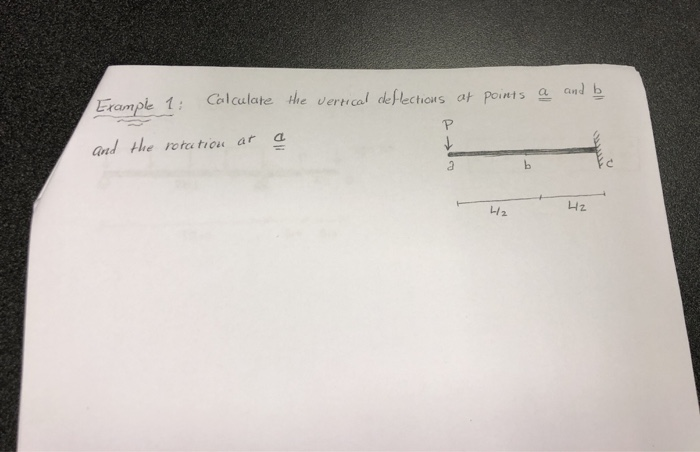 Example 1: Calculate the vertical deflections at points a and b
and the rotation at a
P
a b c
L/2 L/2